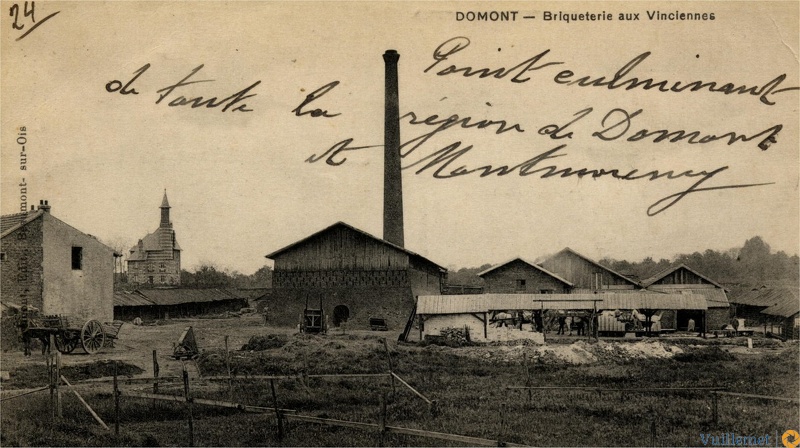 24
DOMONT — Briqueterie aux Vinciennes
Point culminant
de toute la région de Domont
et Montmorency
Beaumont- sur-Ois
Vuillemet